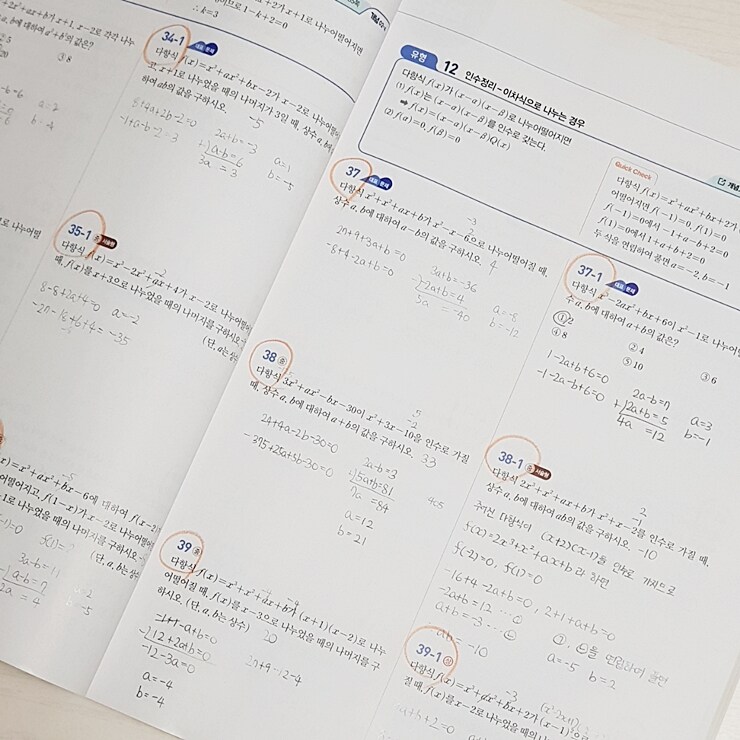 ∴ k=3
34-1 대표 문제
다항식 f(x)=x³+ax²+bx-2가 x-2로 나누어떨어지
고, x+1로 나누었을 때의 나머지가 3일 때, 상수 a, b에
하여 ab의 값을 구하시오. -5
8+4a+2b-2=0
-1+a-b-2=3
2a+b=-3
a-b=6
3a=3
a=1
b=-5
35-1 중 서술형
다항식 f(x)=x³-2x²+ax+4가 x-2로 나누어떨어
때, f(x)를 x+3으로 나누었을 때의 나머지를 구하시오.
(단, a는 상
8-8+2a+4=0
a=-2
-27-18+6+4=-35
3a+b=11
a-b=
2a=4
유형 12 인수정리 - 이차식으로 나누는 경우
다항식 f(x)가 (x-α)(x-β)로 나누어떨어지면
(1) f(x)는 (x-α)(x-β)를 인수로 갖는다.
➡ f(x)=(x-α)(x-β)Q(x)
(2) f(α)=0, f(β)=0
Quick Check
다항식 f(x)=x³+ax²+bx+2가
어떨어지면 f(-1)=0, f(1)=0
f(-1)=0에서 -1+a-b+2=0
f(1)=0에서 1+a+b+2=0
두 식을 연립하여 풀면 a=-2, b=-1
37 대표 문제
다항식 x³+x²+ax+b가 x²-x-6으로 나누어떨어질 때,
상수 a, b에 대하여 a-b의 값을 구하시오. 4
27+9+3a+b=0
-8+4-2a+b=0
3a+b=-36
-2a+b=4
5a=-40
a=-8
b=-12
37-1 대표 문제
다항식 x³-2ax²+bx+6이 x²-1로 나누어떨어
수 a, b에 대하여 a+b의 값은?
① 2 ② 4 ③ 6
④ 8 ⑤ 10
1-2a+b+6=0
-1-2a-b+6=0
2a-b=7
2a+b=5
4a=12
a=3
b=-1
38 중
다항식 3x³+ax²-bx-30이 x²+3x-10을 인수로 가질
때, 상수 a, b에 대하여 a+b의 값을 구하시오. 33
24+4a-2b-30=0
-375+25a+5b-30=0
2a-b=3
5a+b=81
7a=84
405
a=12
b=21
38-1 중 서술형
다항식 2x³+x²+ax+b가 x²+x-2를 인수로 가질 때,
상수 a, b에 대하여 ab의 값을 구하시오. -10
주어진 다항식이 (x+2)(x-1)을 인수로 가지므로
f(x)=2x³+x²+ax+b라 하면
f(-2)=0, f(1)=0
-16+4-2a+b=0, 2+1+a+b=0
-2a+b=12 … ㉠
a+b=-3 … ㉡
㉠, ㉡을 연립하여 풀면
a=-5 b=2
ab=-10
39 중
다항식 f(x)=x³+x²+ax+b가 (x+1)(x-2)로 나누
어떨어질 때, f(x)를 x-3으로 나누었을 때의 나머지를 구
하시오. (단, a, b는 상수) 20
-1+1-a+b=0
12+2a+b=0
-12-3a=0
27+9-12-4
a=-4
b=-4
39-1
다항식 f(x)=x³+ax²+bx+2가 (x-1)²으로
질 때, f(x)를 x-2로 나누었을 때의 나머